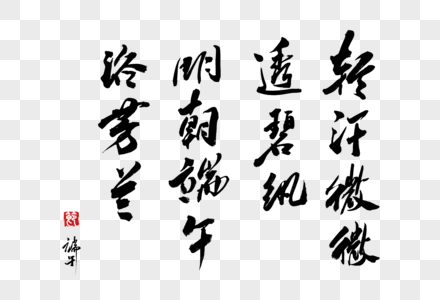 轻汗微微
透碧纨
明朝端午
浴芳兰
端午